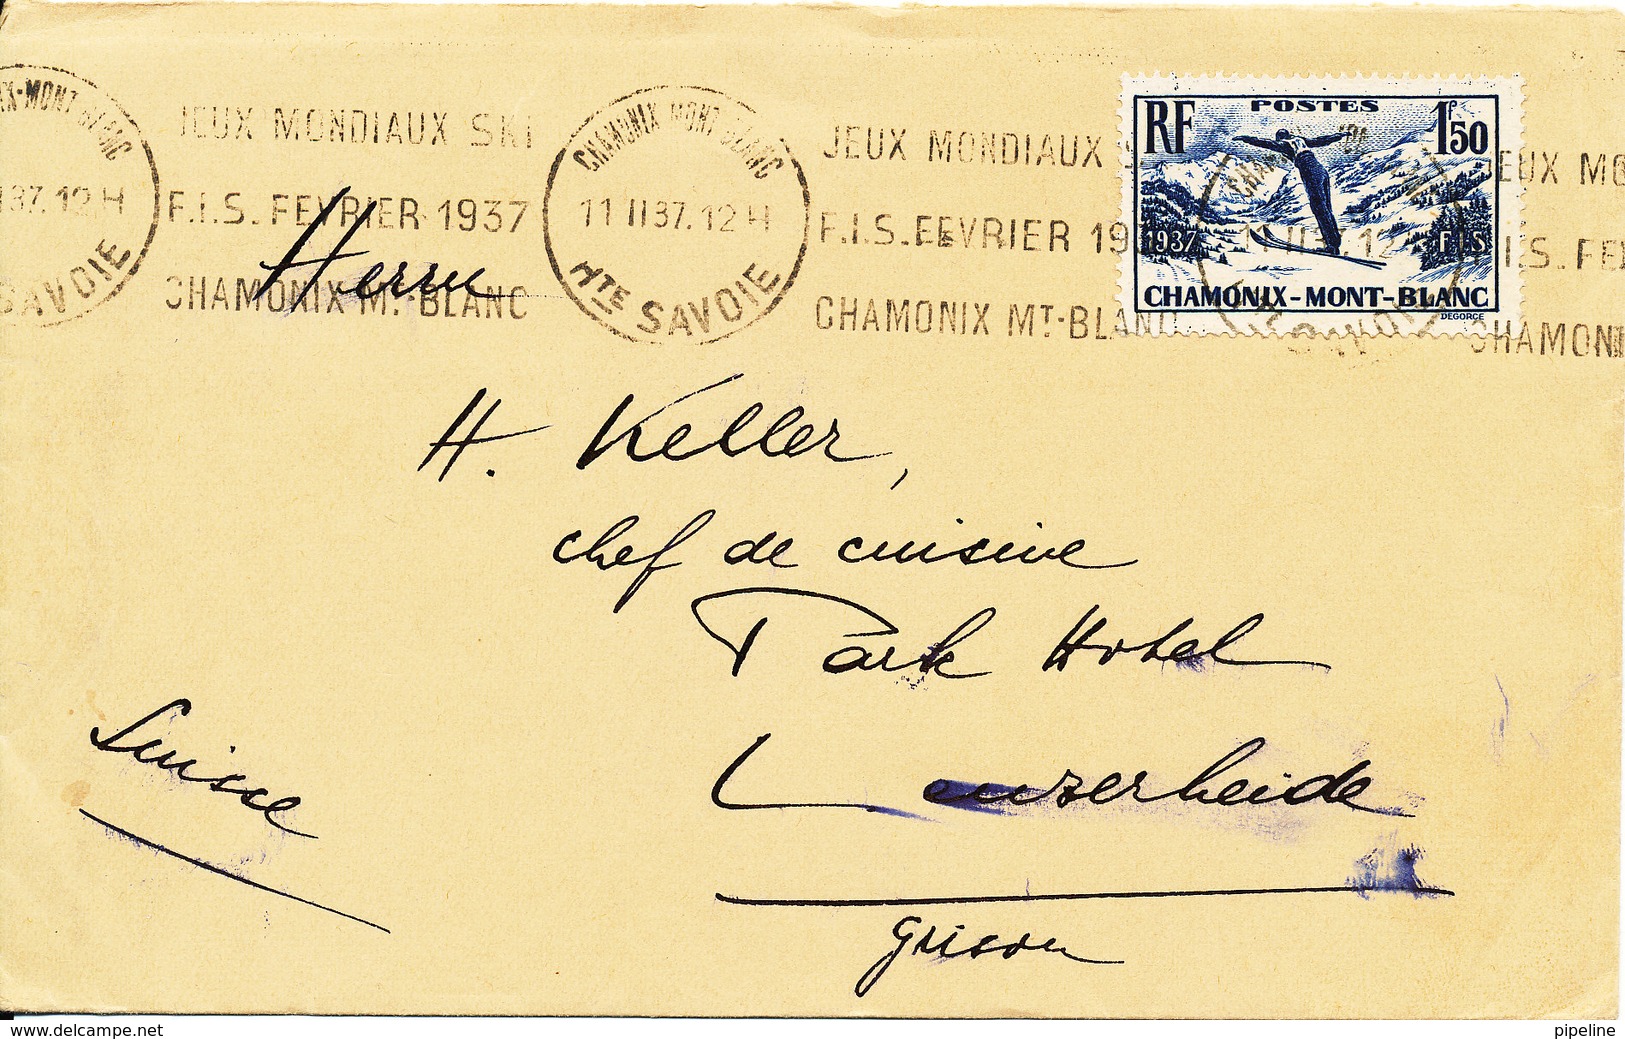 X-MONT BLANC
37.12 H
SAVOIE
JEUX MONDIAUX SKI
F.I.S. FEVRIER 1937
CHAMONIX MT.-BLANC
CHAMONIX MONT BLANC
11 II 37.12 H
HTE SAVOIE
JEUX MONDIAUX S
F.I.S. FEVRIER 19
CHAMONIX MT-BLANC
RF POSTES 1F50
1937 FIS
CHAMONIX-MONT-BLANC
DEGORCE
JEUX MO
F.I.S. FEV
CHAMONI
Herrn
H. Keller,
chef de cuisine
Park Hotel
Lenzerheide
Grison
Suisse
www.delcampe.net
pipeline